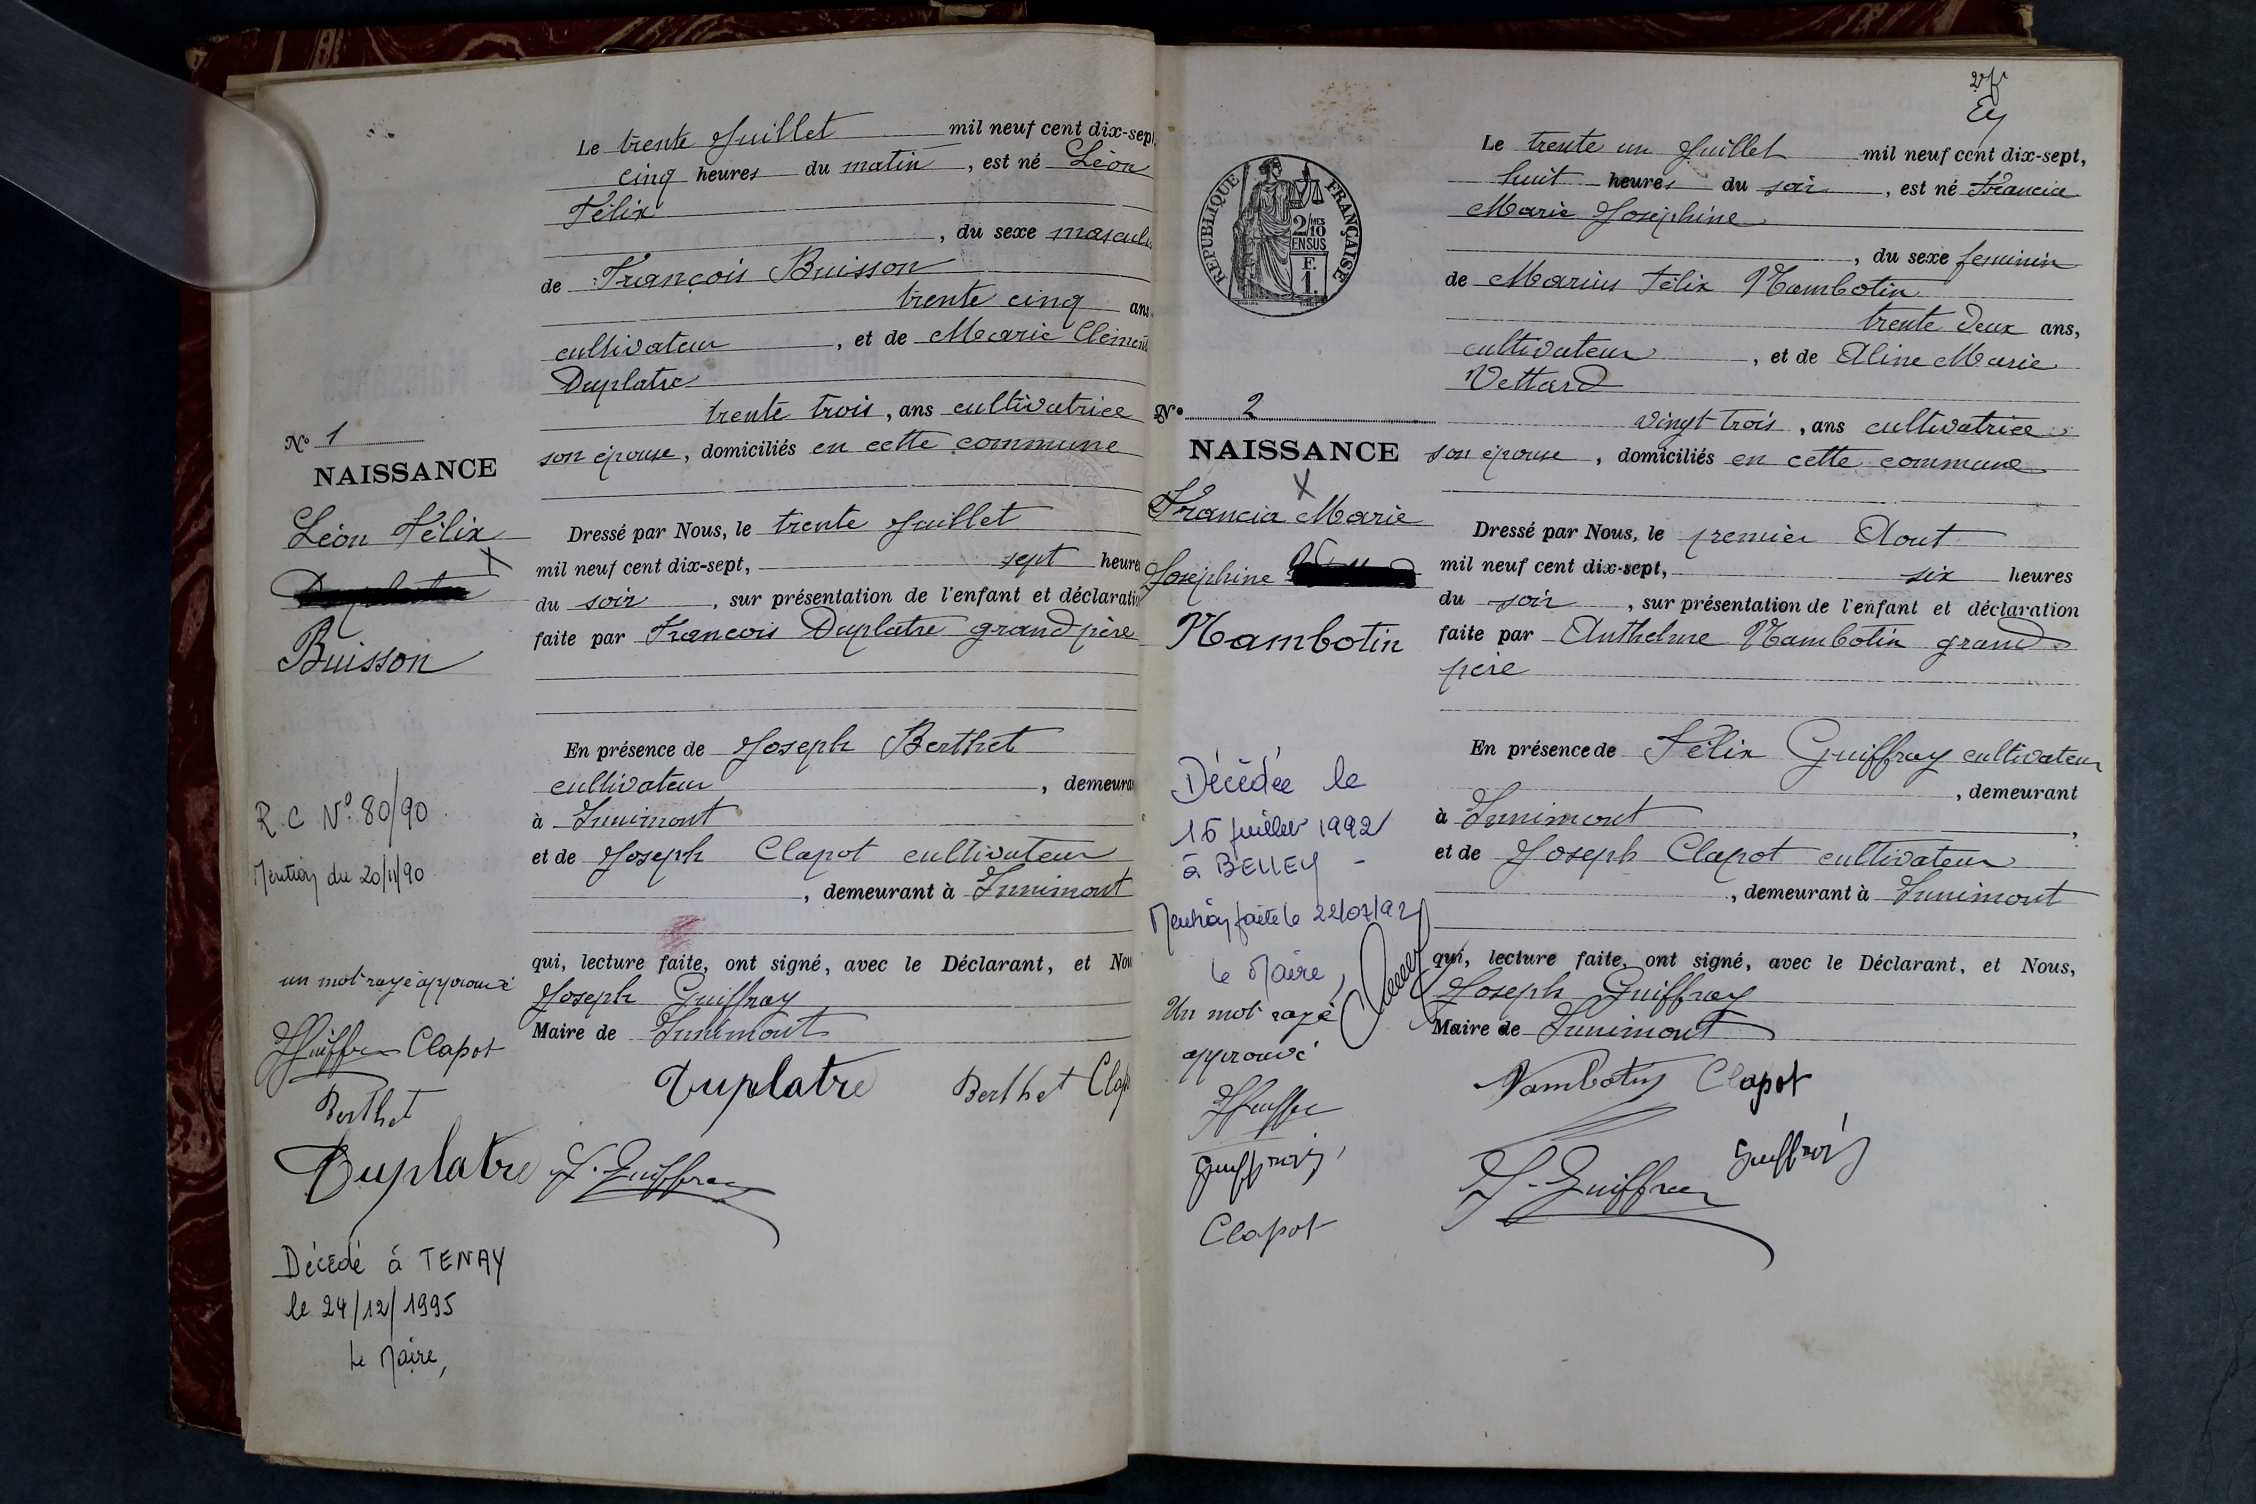 Le trente Juillet mil neuf cent dix-sept
cinq heures du matin, est né Léon
Félix
, du sexe masculi
de François Buisson
trente cinq ans
cultivateur, et de Marie Clément
Duplatre
trente trois, ans cultivatrice
son épouse, domiciliés en cette commune
Dressé par Nous, le trente Juillet
mil neuf cent dix-sept, sept heures
du soir, sur présentation de l'enfant et déclaratio
faite par Francois Duplatre grand père
En présence de Joseph Berthet
cultivateur, demeura
à Innimont
et de Joseph Clapot cultivateur
, demeurant à Innimont
qui, lecture faite, ont signé, avec le Déclarant, et Nou
Joseph Guiffray
Maire de Innimont
Duplatre Berthet Clap
J. Guiffray
No 1
NAISSANCE
Léon Félix
Buisson
R.C No 80/90
Mention du 20/11/90
un mot rayé approuvé
JGuiffray Clapot
Berthet
Duplatre
Décédé à TENAY
le 24/12/1995
Le Maire,
RÉPUBLIQUE FRANÇAISE
2/10 MES
EN SUS
F.
1.
No 2
NAISSANCE
X
Francia Marie
Joséphine
Nambotin
Décédée le
15 juillet 1992
à BELLEY -
Mention faite le 22/07/92
Le Maire,
Un mot rayé
approuvé
Clapot
Le trente un Juillet mil neuf cent dix-sept,
huit heures du soir, est né Francia
Marie Joséphine
, du sexe feminin
de Marius Félix Nambotin
trente deux ans,
cultivateur, et de Aline Marie
Vettard
vingt trois, ans cultivatrice
son épouse, domiciliés en cette commune
Dressé par Nous, le premier Aout
mil neuf cent dix-sept, six heures
du soir, sur présentation de l'enfant et déclaration
faite par Anthelme Nambotin grand
père
En présence de Félix Guiffray cultivateur
, demeurant
à Innimont,
et de Joseph Clapot cultivateur
, demeurant à Innimont
qui, lecture faite, ont signé, avec le Déclarant, et Nous,
Joseph Guiffray
Maire de Innimont
Nambotin Clapot
J. Guiffray